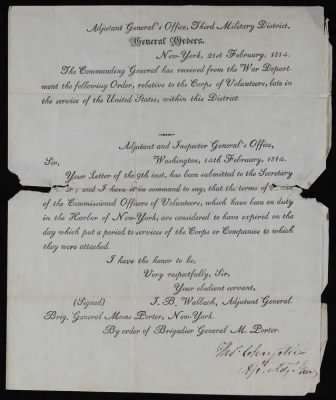 Adjutant General's Office, Third Military District.
General Orders.
New-York, 21st February, 1814.
The Commanding General has received from the War Depart-
ment the following Order, relative to the Corps of Volunteers, late in
the service of the United States, within this District.
Adjutant and Inspector General's Office,
Sir, Washington, 14th February, 1814.
Your Letter of the 9th inst. has been submitted to the Secretary
and I have it in command to say, that the terms of
of the Commissioned Officers of Volunteers, which have been on duty
in the Harbor of New-York, are considered to have expired on the
day which put a period to services of the Corps or Companies to which
they were attached.
I have the honor to be,
Very respectfully, Sir,
Your obedient servant,
(Signed) J. B. Wallach, Adjutant General.
Brig. General Moses Porter, New-York.
By order of Brigadier General M. Porter.